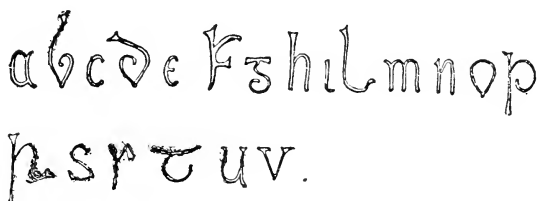 a b c d e F g h ı l m n o p
R s r t u v .